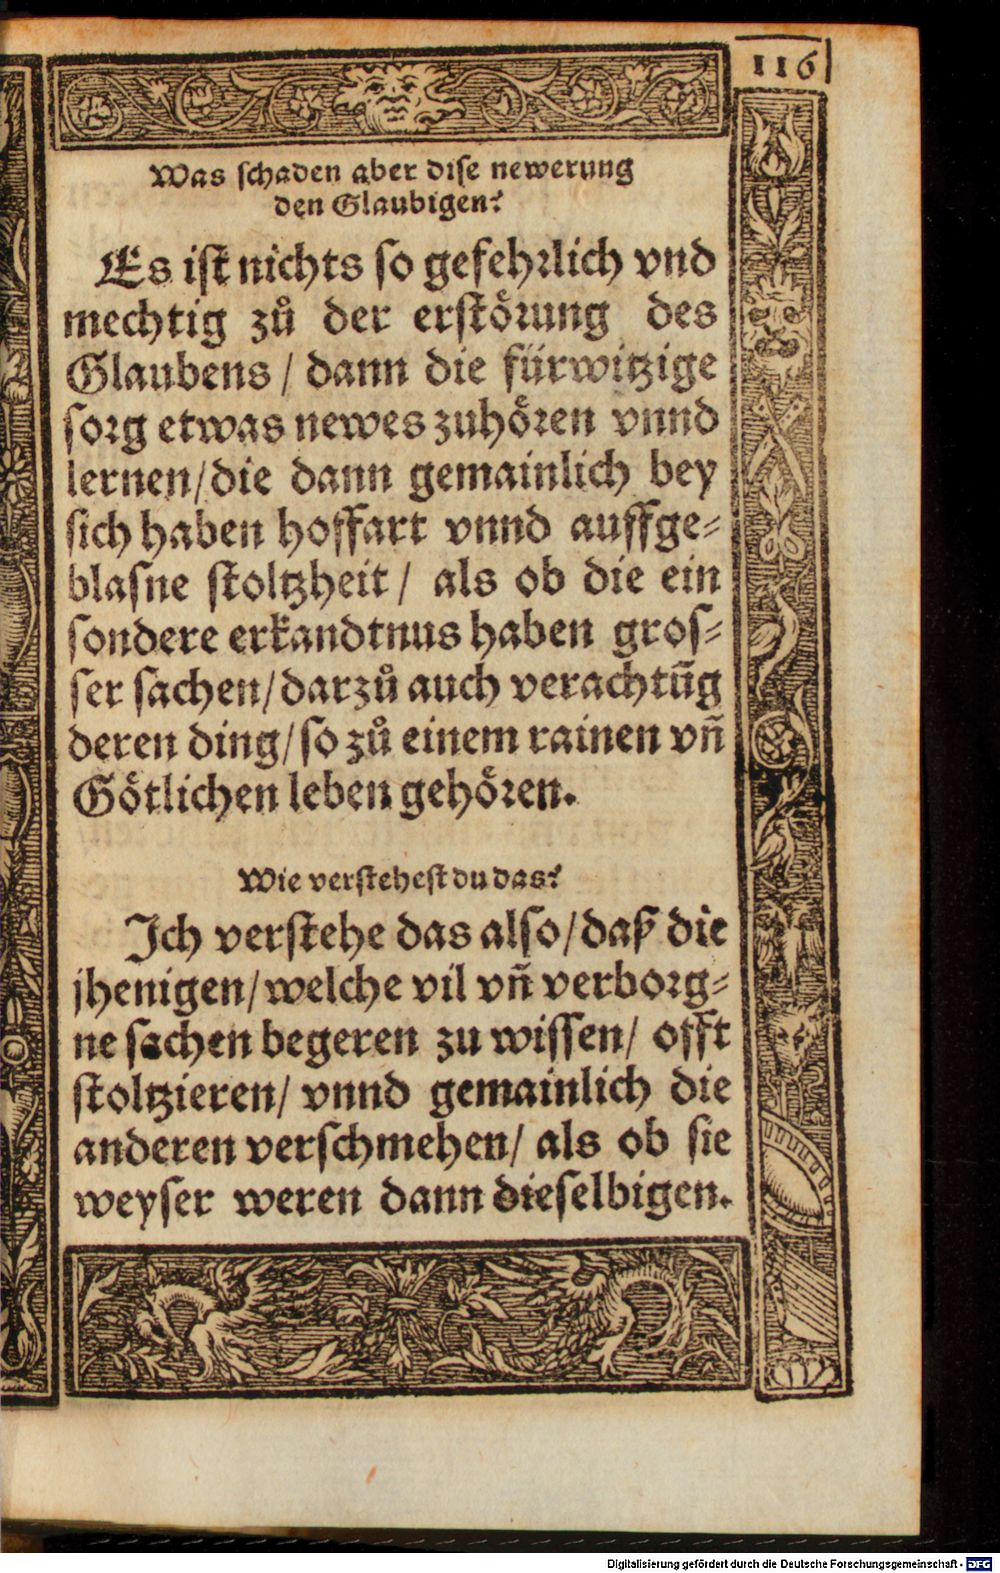 116
Was schaden aber dise newerung
den Glaubigen?
Es ist nichts so gefehrlich vnd
mechtig zů der erstörung des
Glaubens / dann die fürwitzige
sorg etwas newes zuhören vnnd
lernen / die dann gemainlich bey
sich haben hoffart vnnd auffge⸗
blasne stoltzheit / als ob die ein
sondere erkandtnus haben gros⸗
ser sachen / darzů auch verachtūg
deren ding / so zů einem rainen vn̄
Götlichen leben gehören.
Wie verstehest du das?
Ich verstehe das also / daß die
jhenigen / welche vil vn̄ verborg⸗
ne sachen begeren zu wissen / offt
stoltzieren / vnnd gemainlich die
anderen verschmehen / als ob sie
weyser weren dann dieselbigen.
Digitalisierung gefördert durch die Deutsche Forschungsgemeinschaft - DFG